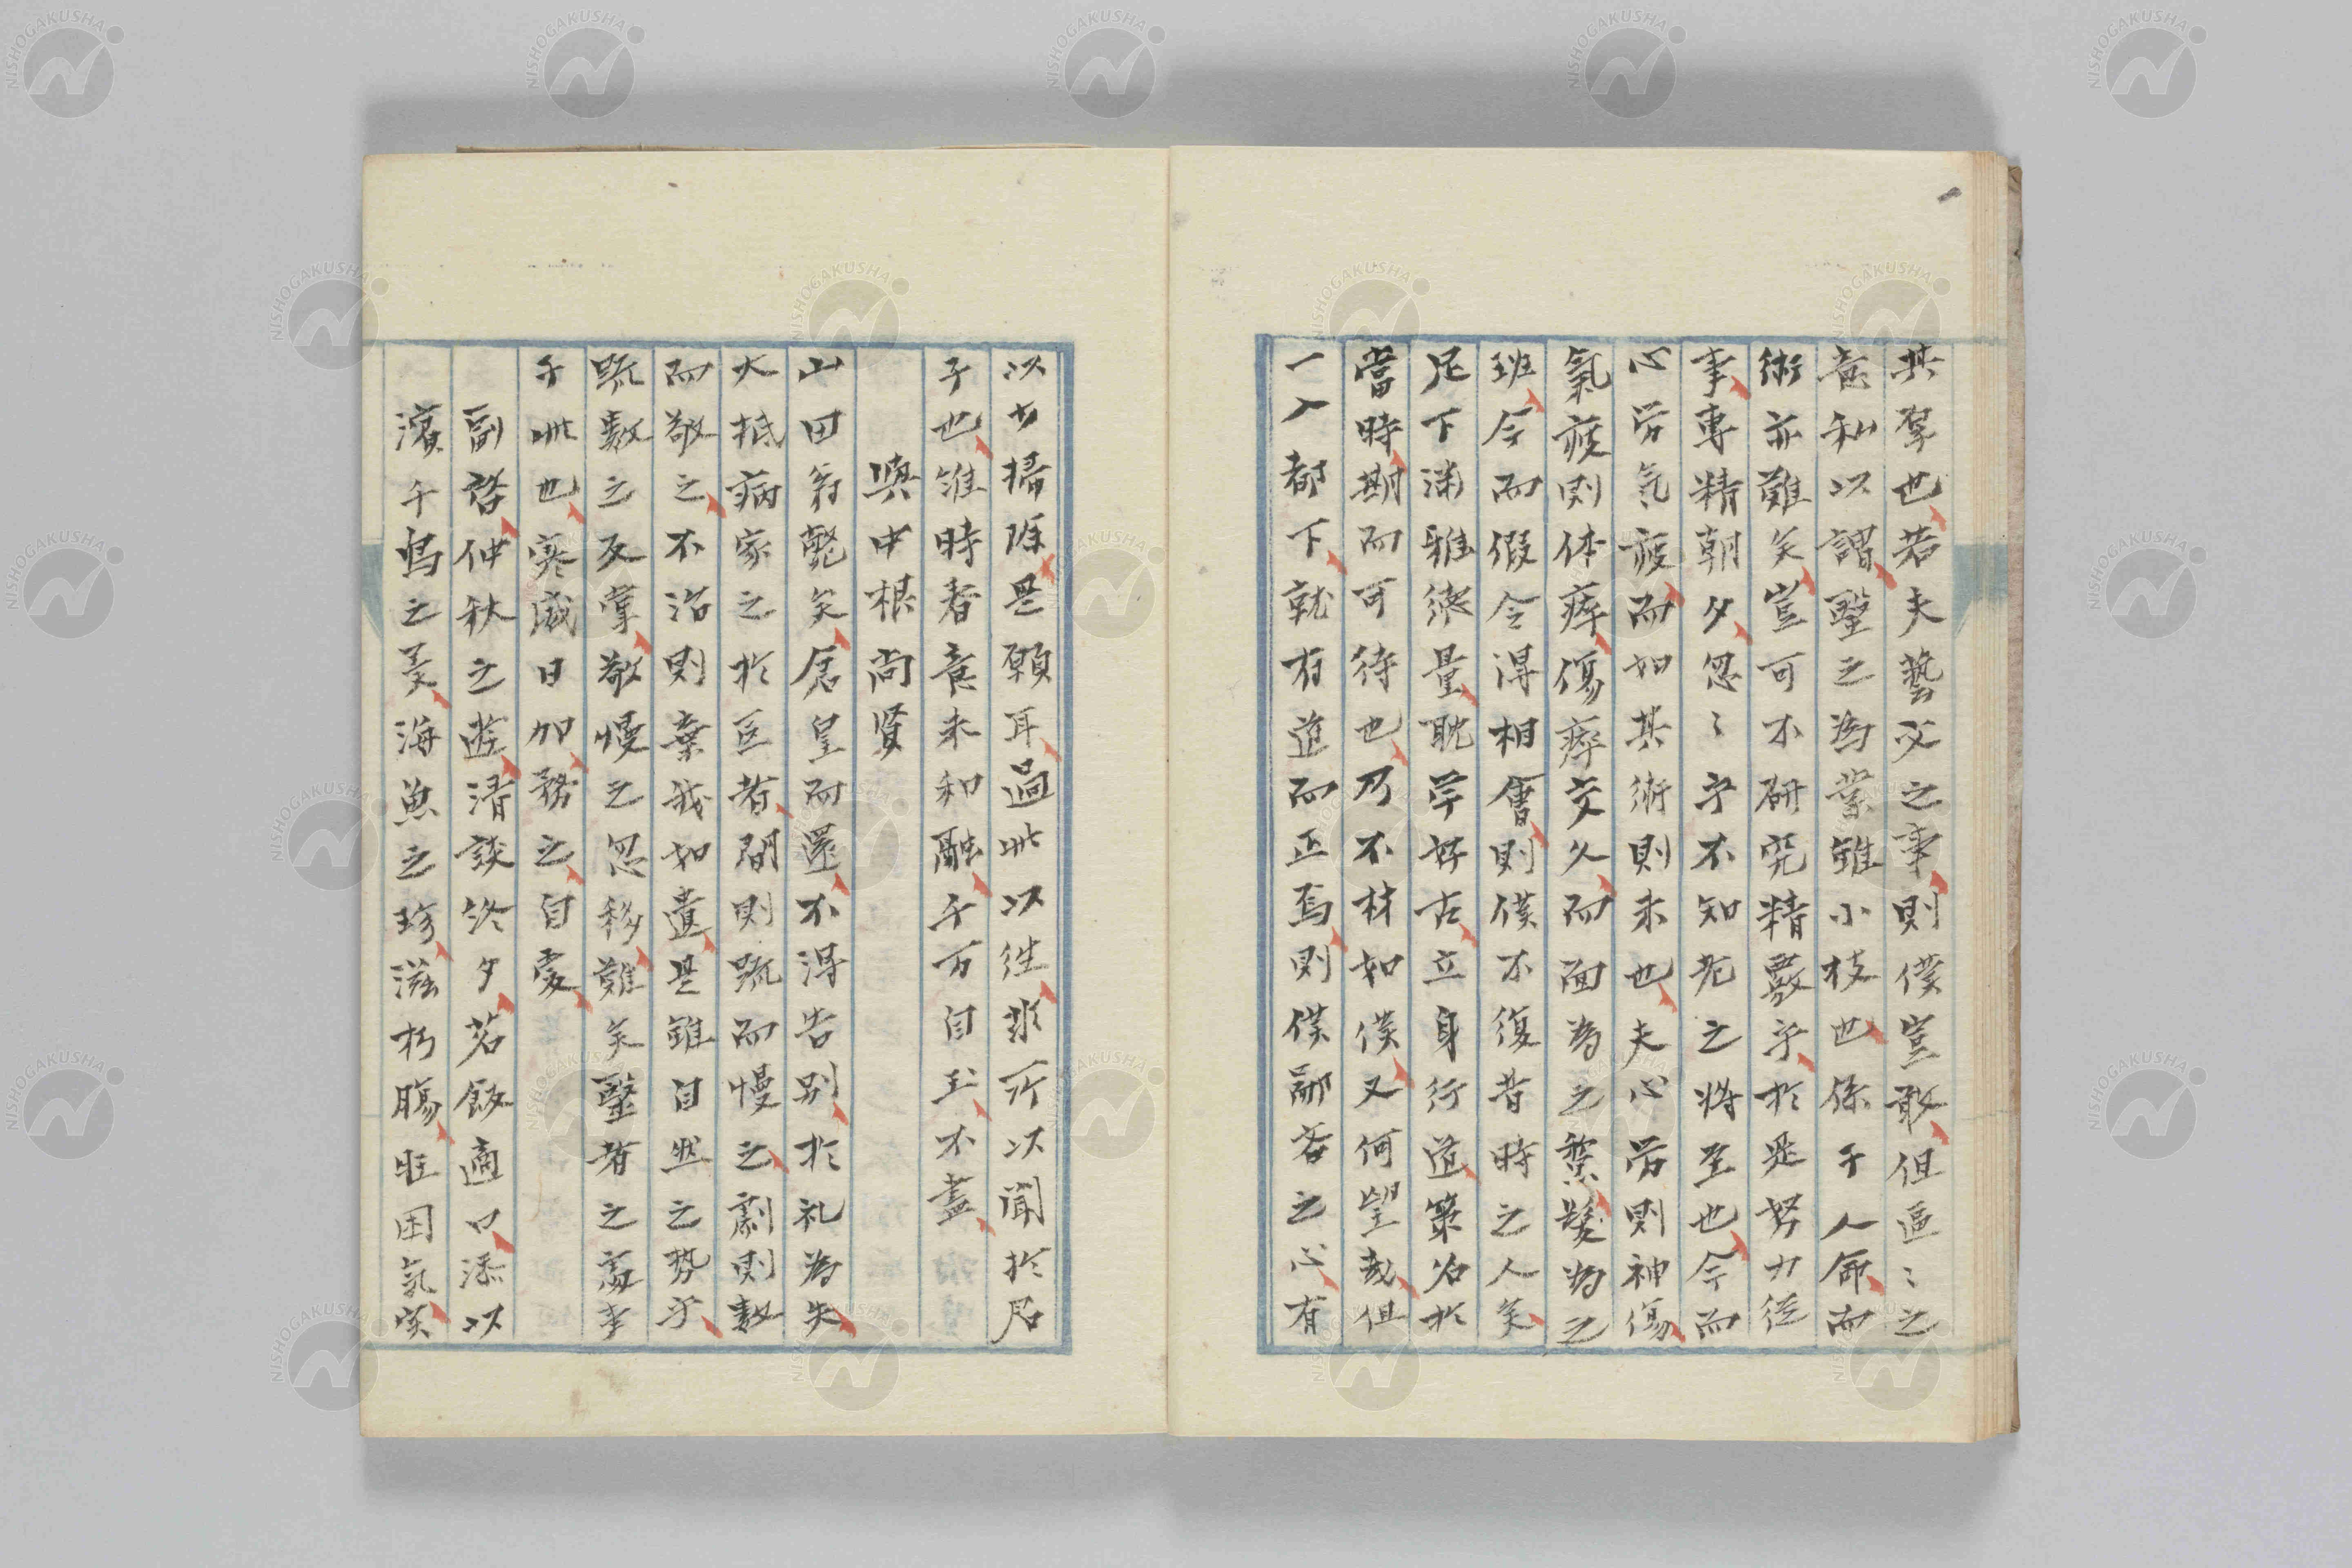 其羣也若夫藝文之事則僕豈敢但區〻之
意私以謂毉之為業雖小枝也係于人命而
術亦難矣豈可不研究精覈乎於是努力従
事專精朝夕忽〻乎不知老之将至也今而
心労気疲而如其術則未也夫心労則神傷
氣疲則体瘁傷瘁交久而面為之黎髮為之
班今而假令得相會則僕不復昔時之人矣
足下満雅徳量耽学好古立身行道策名於
當時期而可待也乃不材如僕又何望哉但
一入都下就有道而正焉則僕鄙吝之心有
以少掃除是願耳過此以徃求所以闻於君
子也維時春意未和融千万自玉不盡
與中根尚賢
山田翁斃矣倉皇而還不得告别於礼為失
大抵病家之於医者間則疏而慢之劇則数
而敬之不治則棄我如遺是雖自然之勢乎
疏数之反掌敬慢之忽移難矣毉者之高事
于此也寒威日加務之自愛
副啓仲秋之遊清談終夕茗飯適口添以
濱千鳥之美海魚之珍滋朽腸旺困気実